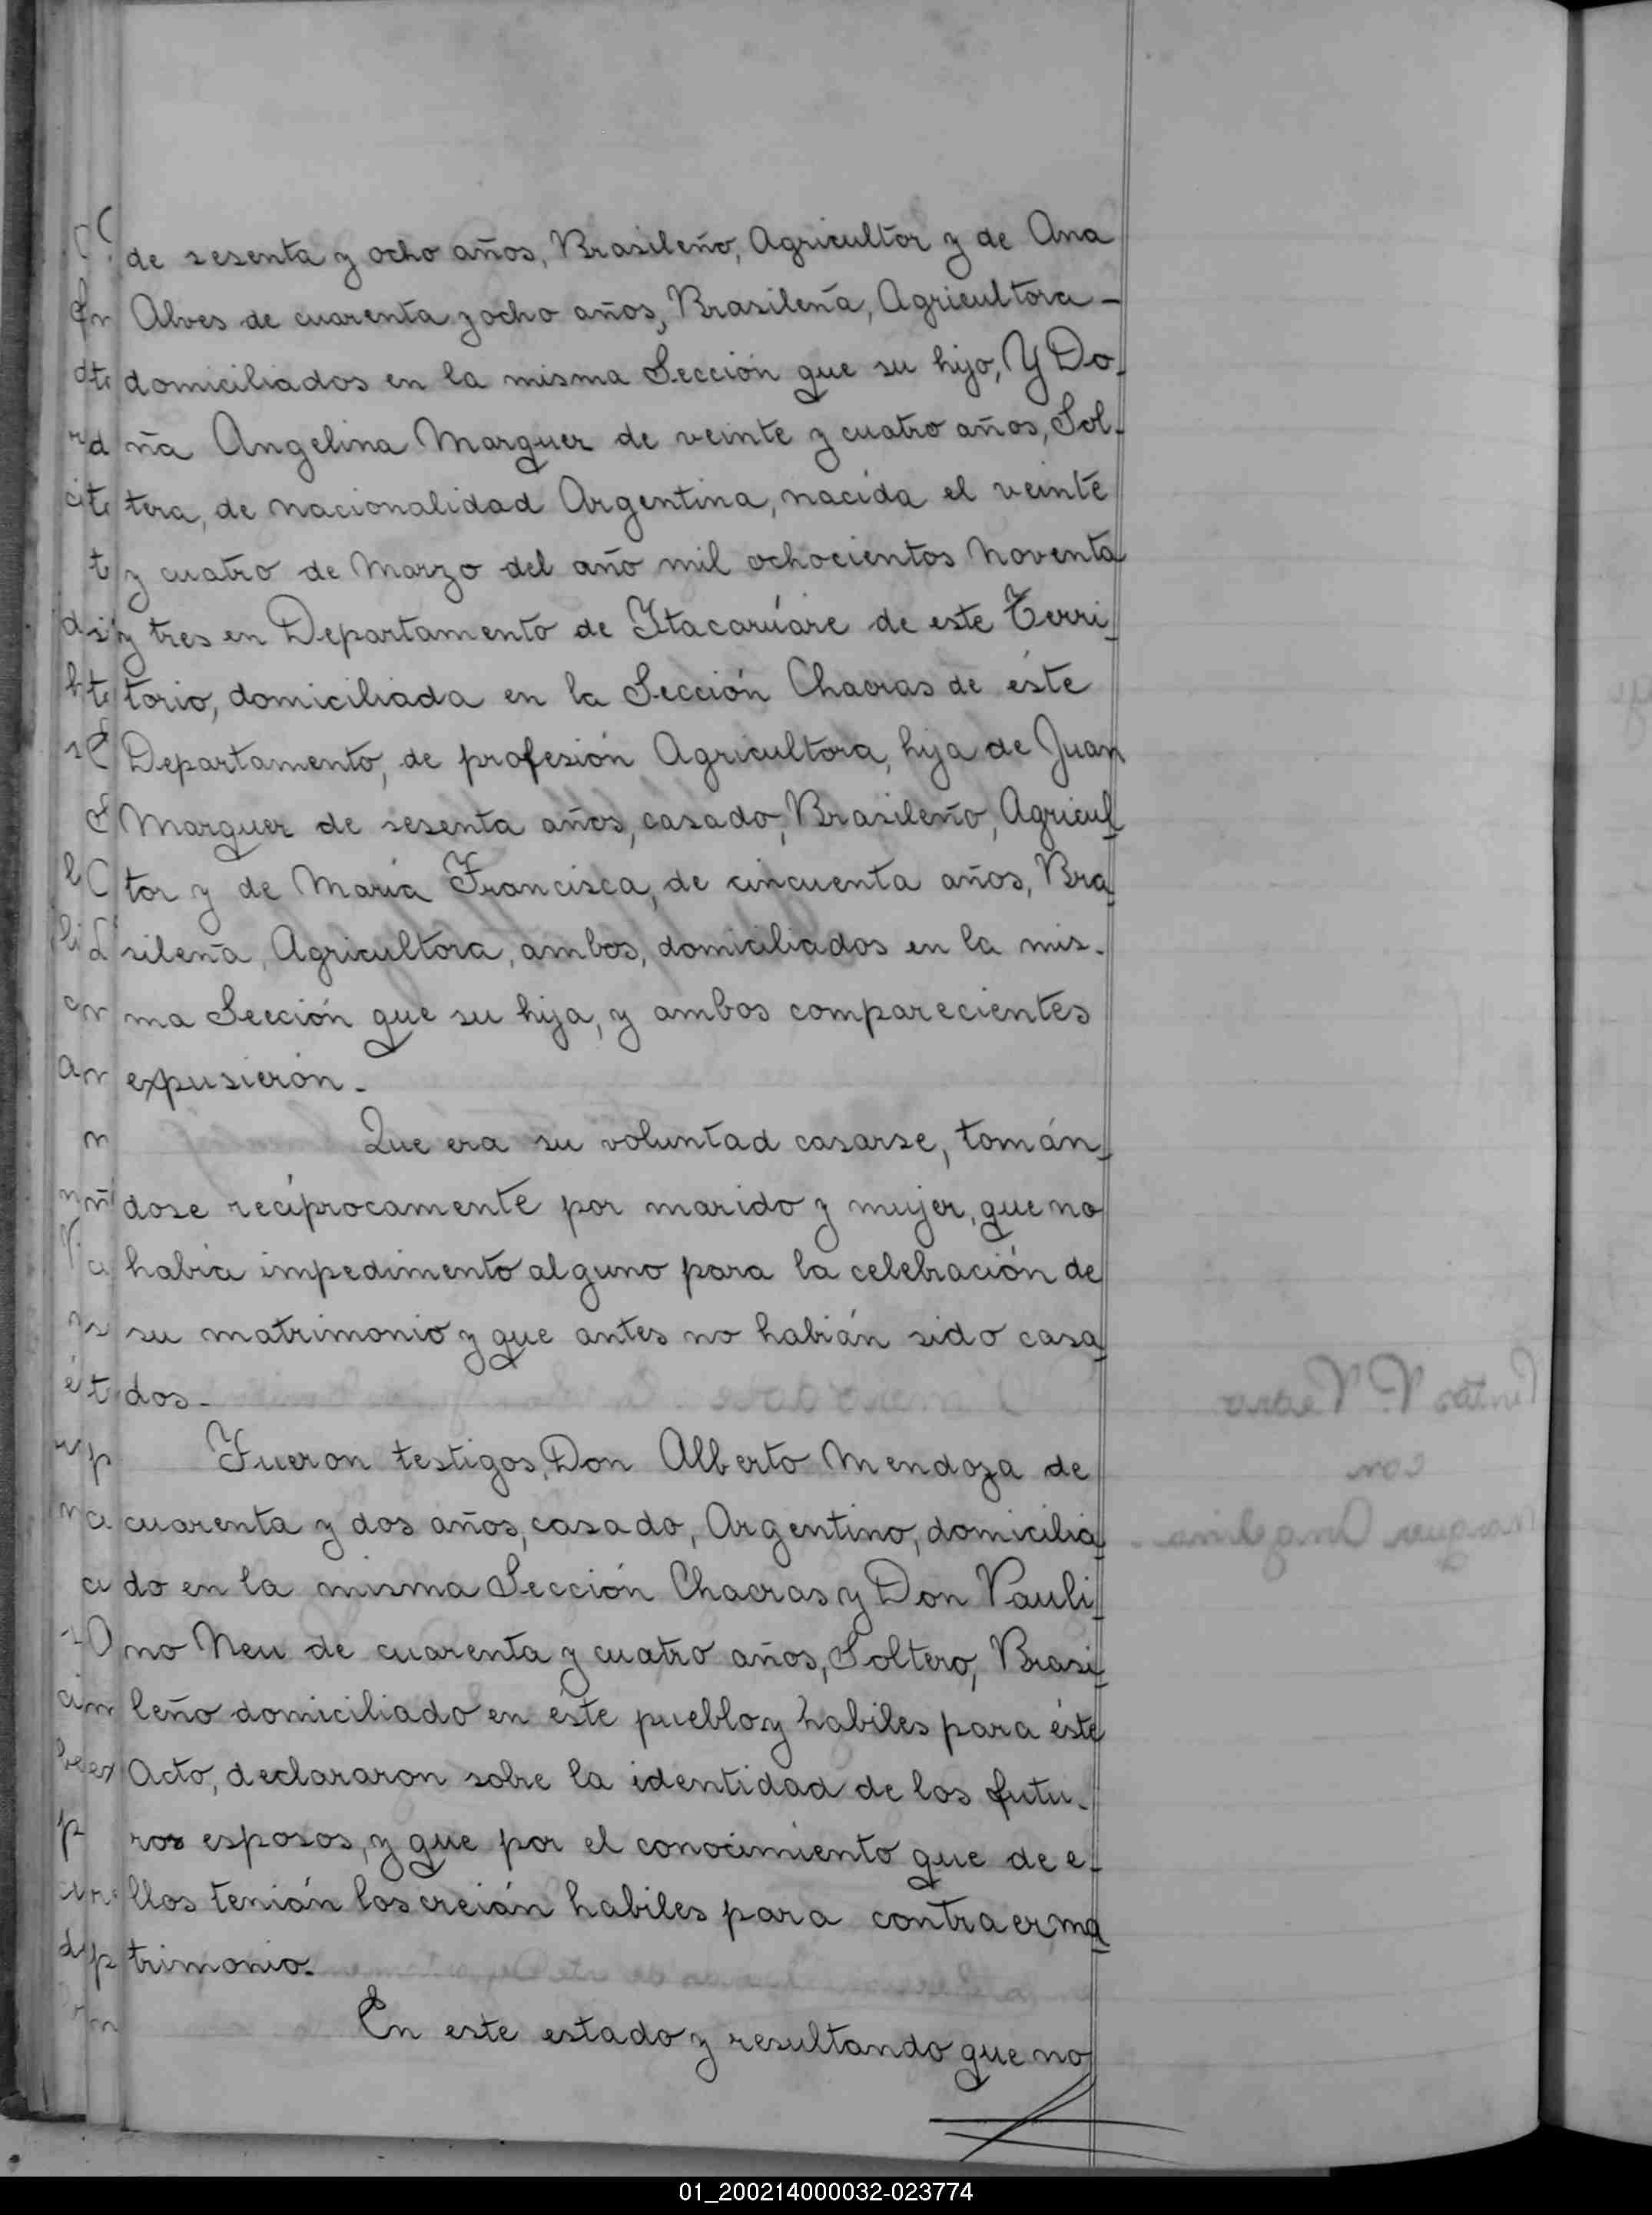 de sesenta y ocho años, Brasileño, Agricultor y de Ana
Alves de cuarenta y ocho años, Brasileña, Agricultora -
domiciliados en la misma Sección que su hijo, Y Do-
ña Angelina Marquer de veinte y cuatro años, Sol-
tera, de nacionalidad Argentina, nacida el veinte
y cuatro de Marzo del año mil ochocientos noventa
y tres en Departamento de Itacarúare de este Terri-
torio, domiciliada en la Sección Chacras de éste
Departamento, de profesión Agricultora, hija de Juan
Marquer de sesenta años, casado, Brasileño, Agricul-
tor y de María Francisca, de cincuenta años, Bra-
sileña, Agricultora, ambos, domiciliados en la mis-
ma Sección que su hija, y ambos comparecientes
expusierón.-
Que era su voluntad casarse, tomán-
dose recíprocamente por marido y mujer, que no
había impedimento alguno para la celebración de
su matrimonio y que antes no habián sido casa-
dos.-
Fueron testigos, Don Alberto Mendoza de
cuarenta y dos años, casado, Argentino, domicilia-
do en la misma Sección Chacras y Don Pauli-
no Neu de cuarenta y cuatro años, Soltero, Brasi-
leño domiciliado en éste pueblo y habiles para éste
Acto, declararon sobre la identidad de los futu-
ros esposos, y que por el conocimiento que de e-
llos tenián los creián habiles para contraer ma-
trimonio.-
En este estado y resultando que no
01_200214000032-023774